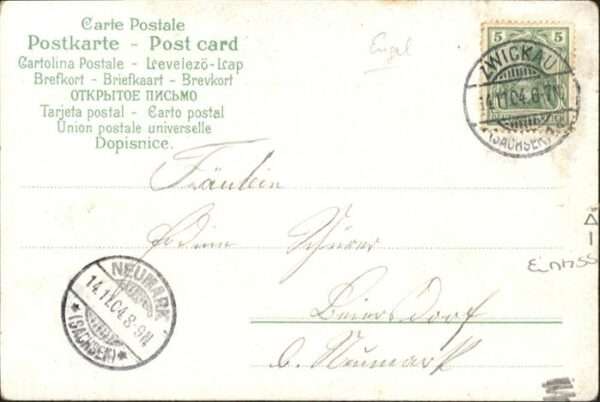 Carte Postale
Postkarte - Post card
Cartolina Postale - Levelező-Lap
Brefkort - Briefkaart - Brevkort
ОТКРЫТОЕ ПИСЬМО
Tarjeta postal - Carto postal
Union postale universelle
Dopisnice.
Engel
5 5
ZWICKAU
14.11.04.8-9N.
(SACHSEN)
Fräulein
Schürer
Beiersdorf
b. Neumark
NEUMARK
14.11.04.8-9N
*(SACHSEN)*